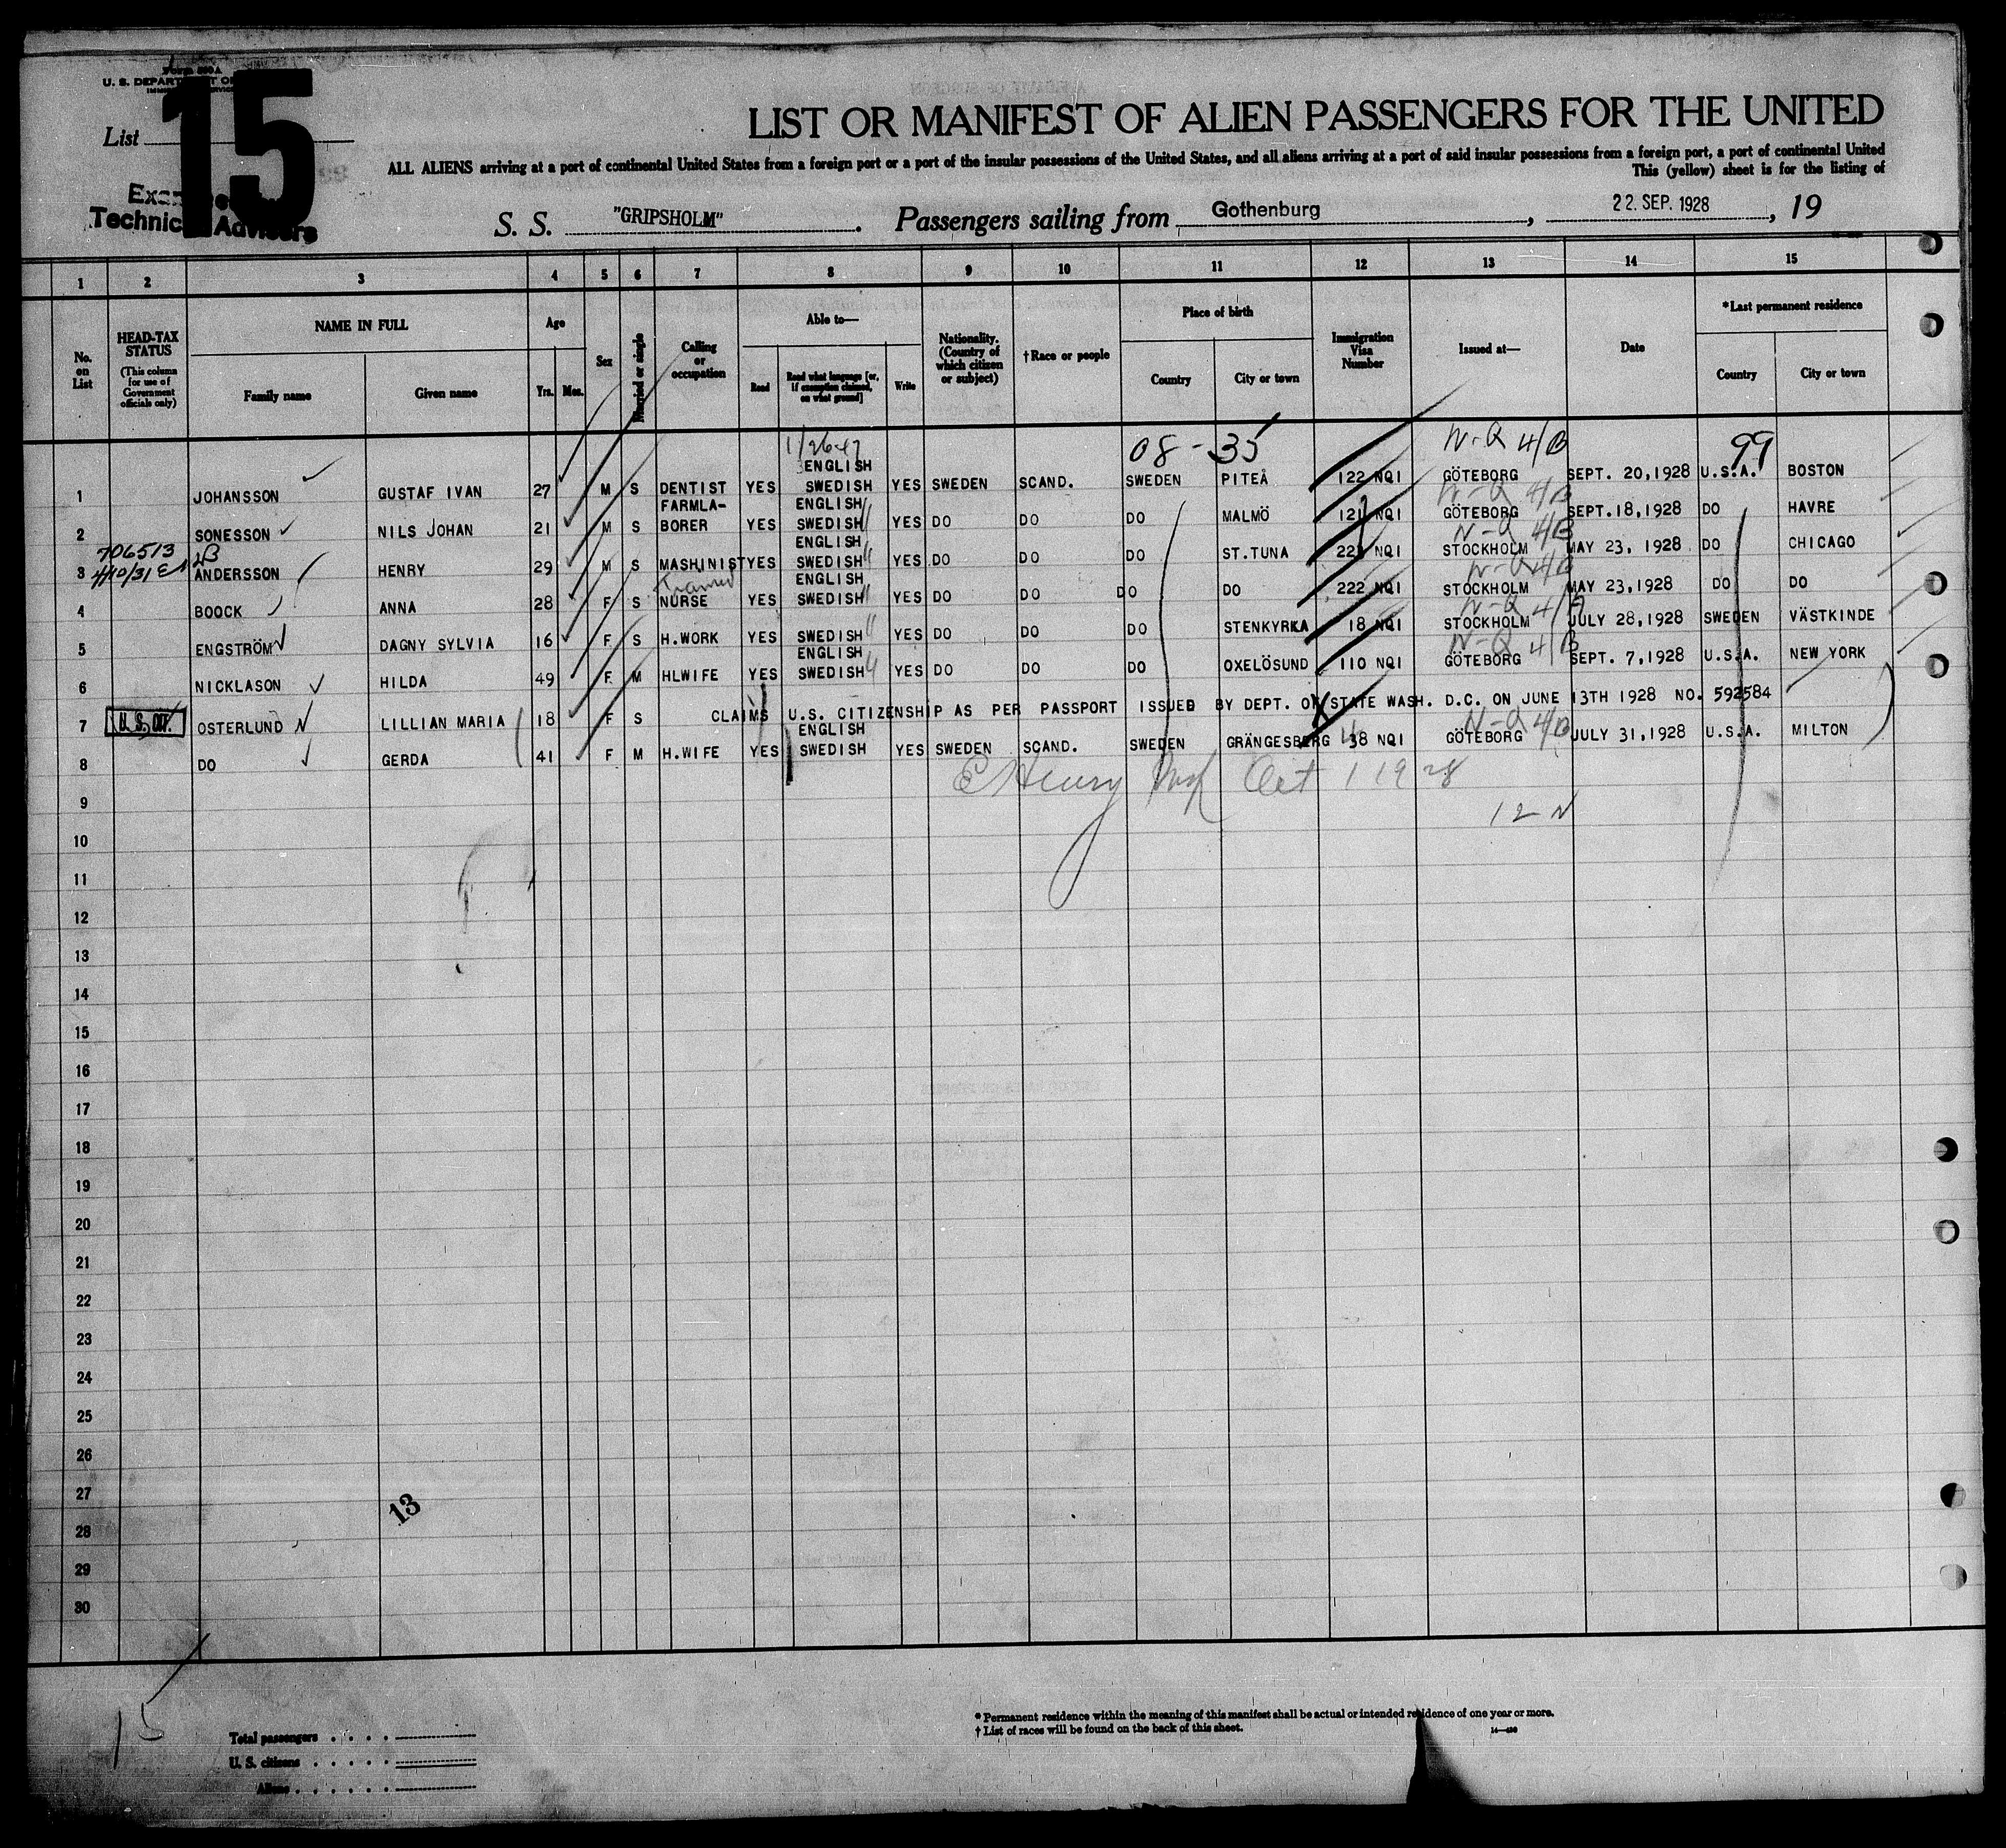 Form 500A
U. S. DEPARTMENT OF
List 15
Technical Advisors
LIST OR MANIFEST OF ALIEN PASSENGERS FOR THE UNITED
ALL ALIENS arriving at a port of continental United States from a foreign port or a port of the insular possessions of the United States, and all aliens arriving at a port of said insular possessions from a foreign port, a port of continental United
This (yellow) sheet is for the listing of
S. S. "GRIPSHOLM". Passengers sailing from Gothenburg, 22. SEP. 1928, 19
1 2 3 4 5 6 7 8 9 10 11 12 13 14 15
No. on List
HEAD-TAX STATUS (This column for use of Government officials only)
NAME IN FULL Family name Given name
Age Yrs. Mos.
Sex
Married or single
Calling or occupation
Able to— Read Read what language [or, if exemption claimed, on what ground] Write
Nationality. (Country of which citizen or subject)
†Race or people
Place of birth Country City or town
Immigration Visa Number
Issued at—
Date
*Last permanent residence Country City or town
1/26-47 08-35 N-Q 4/B 99
1 JOHANSSON GUSTAF IVAN 27 M S DENTIST YES ENGLISH SWEDISH YES SWEDEN SCAND. SWEDEN PITEÅ 122 NQI GÖTEBORG SEPT. 20,1928 U.S.A. BOSTON
N-Q 4/B
2 SONESSON NILS JOHAN 21 M S FARMLA-BORER YES ENGLISH SWEDISH YES DO DO DO MALMÖ 121 NQI GÖTEBORG SEPT.18,1928 DO HAVRE
706513 N-Q 4/B
4/10/31
3 ANDERSSON HENRY 29 M S MASHINIST YES ENGLISH SWEDISH YES DO DO DO ST.TUNA 223 NQI STOCKHOLM MAY 23, 1928 DO CHICAGO
Trained N-Q 4/B
4 BOOCK ANNA 28 F S NURSE YES ENGLISH SWEDISH YES DO DO DO DO 222 NQI STOCKHOLM MAY 23,1928 DO DO
N-Q 4/A
5 ENGSTRÖM DAGNY SYLVIA 16 F S H.WORK YES SWEDISH YES DO DO DO STENKYRKA 18 NQI STOCKHOLM JULY 28,1928 SWEDEN VÄSTKINDE
N-Q 4/B
6 NICKLASON HILDA 49 F M HLWIFE YES ENGLISH SWEDISH YES DO DO DO OXELÖSUND 110 NQI GÖTEBORG SEPT. 7,1928 U.S.A. NEW YORK
7 U.S. CIT. OSTERLUND LILLIAN MARIA 18 F S CLAIMS U.S. CITIZENSHIP AS PER PASSPORT ISSUED BY DEPT. OF STATE WASH. D.C. ON JUNE 13TH 1928 NO. 592584
N-Q 4/B
8 DO GERDA 41 F M H.WIFE YES ENGLISH SWEDISH YES SWEDEN SCAND. SWEDEN GRÄNGESBERG 138 NQI GÖTEBORG JULY 31,1928 U.S.A. MILTON
E Henry Insp Oct 1 1928
9
12 N
10
11
12
13
14
15
16
17
18
19
20
21
22
23
24
25
26
27
13
28
29
30
15
* Permanent residence within the meaning of this manifest shall be actual or intended residence of one year or more.
† List of races will be found on the back of this sheet.
Total passengers
U. S. citizens
Aliens